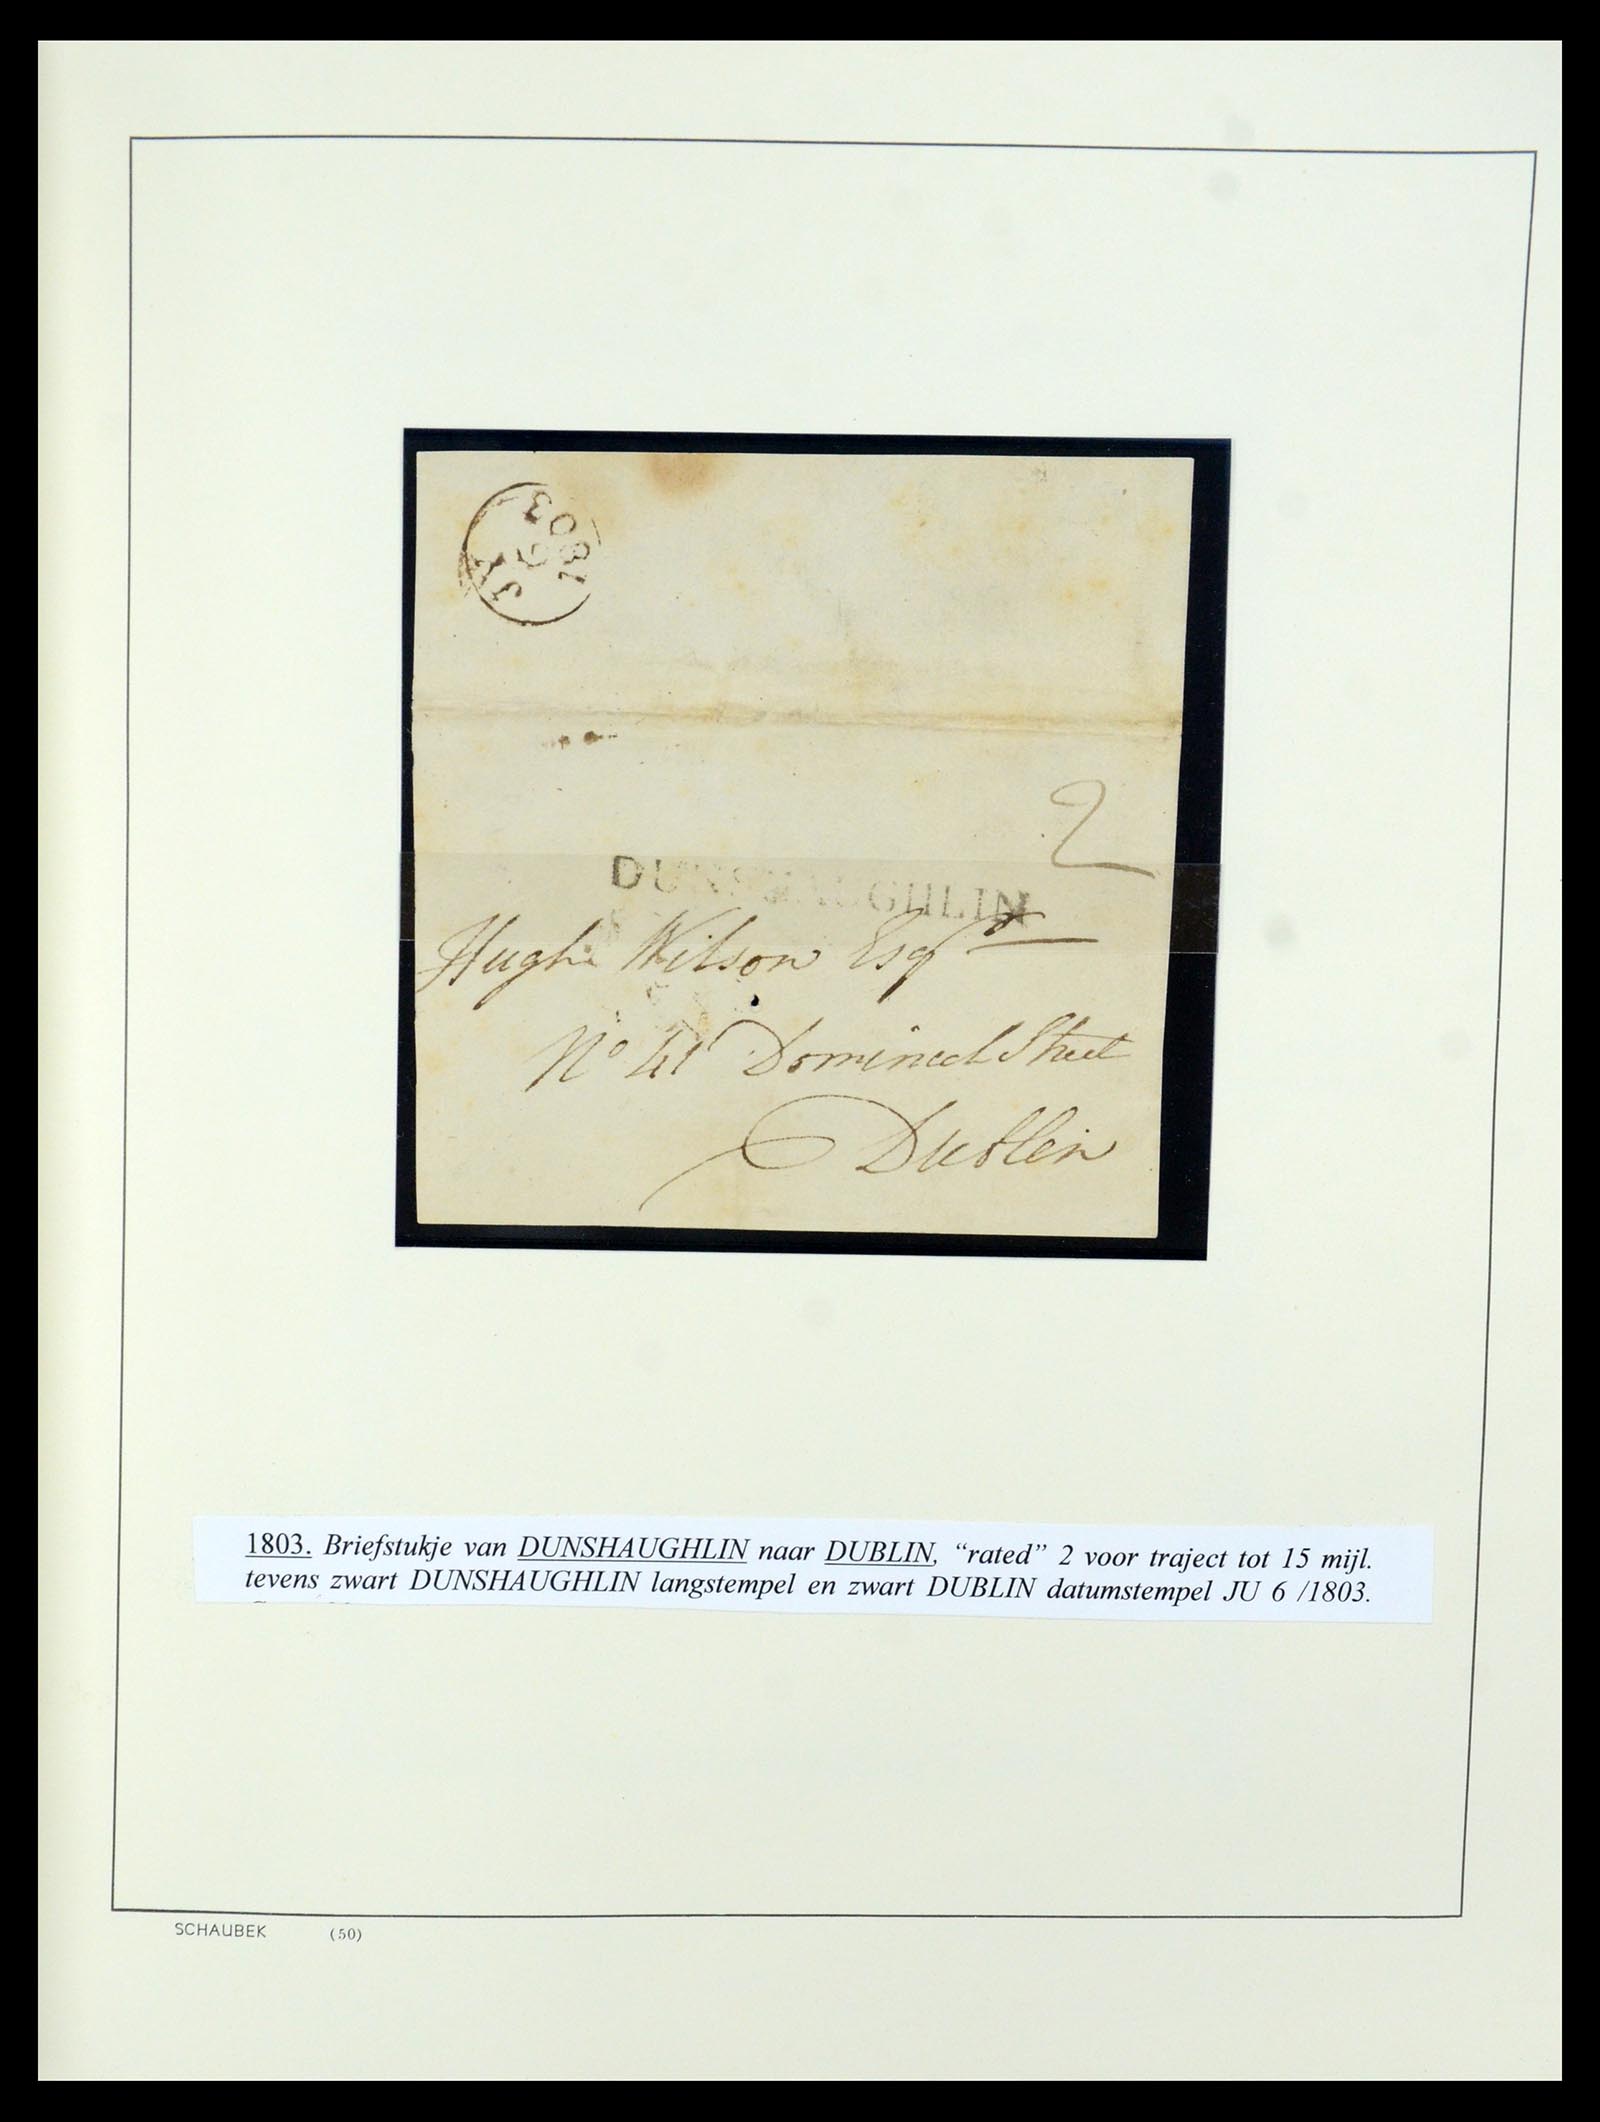 JU
6
1803
2
DUNSHAUGHLIN
Hugh Wilson Esqr
No 41 Dominick Street
Dublin
1803. Briefstukje van DUNSHAUGHLIN naar DUBLIN, “rated” 2 voor traject tot 15 mijl.
tevens zwart DUNSHAUGHLIN langstempel en zwart DUBLIN datumstempel JU 6 /1803.
SCHAUBEK (50)